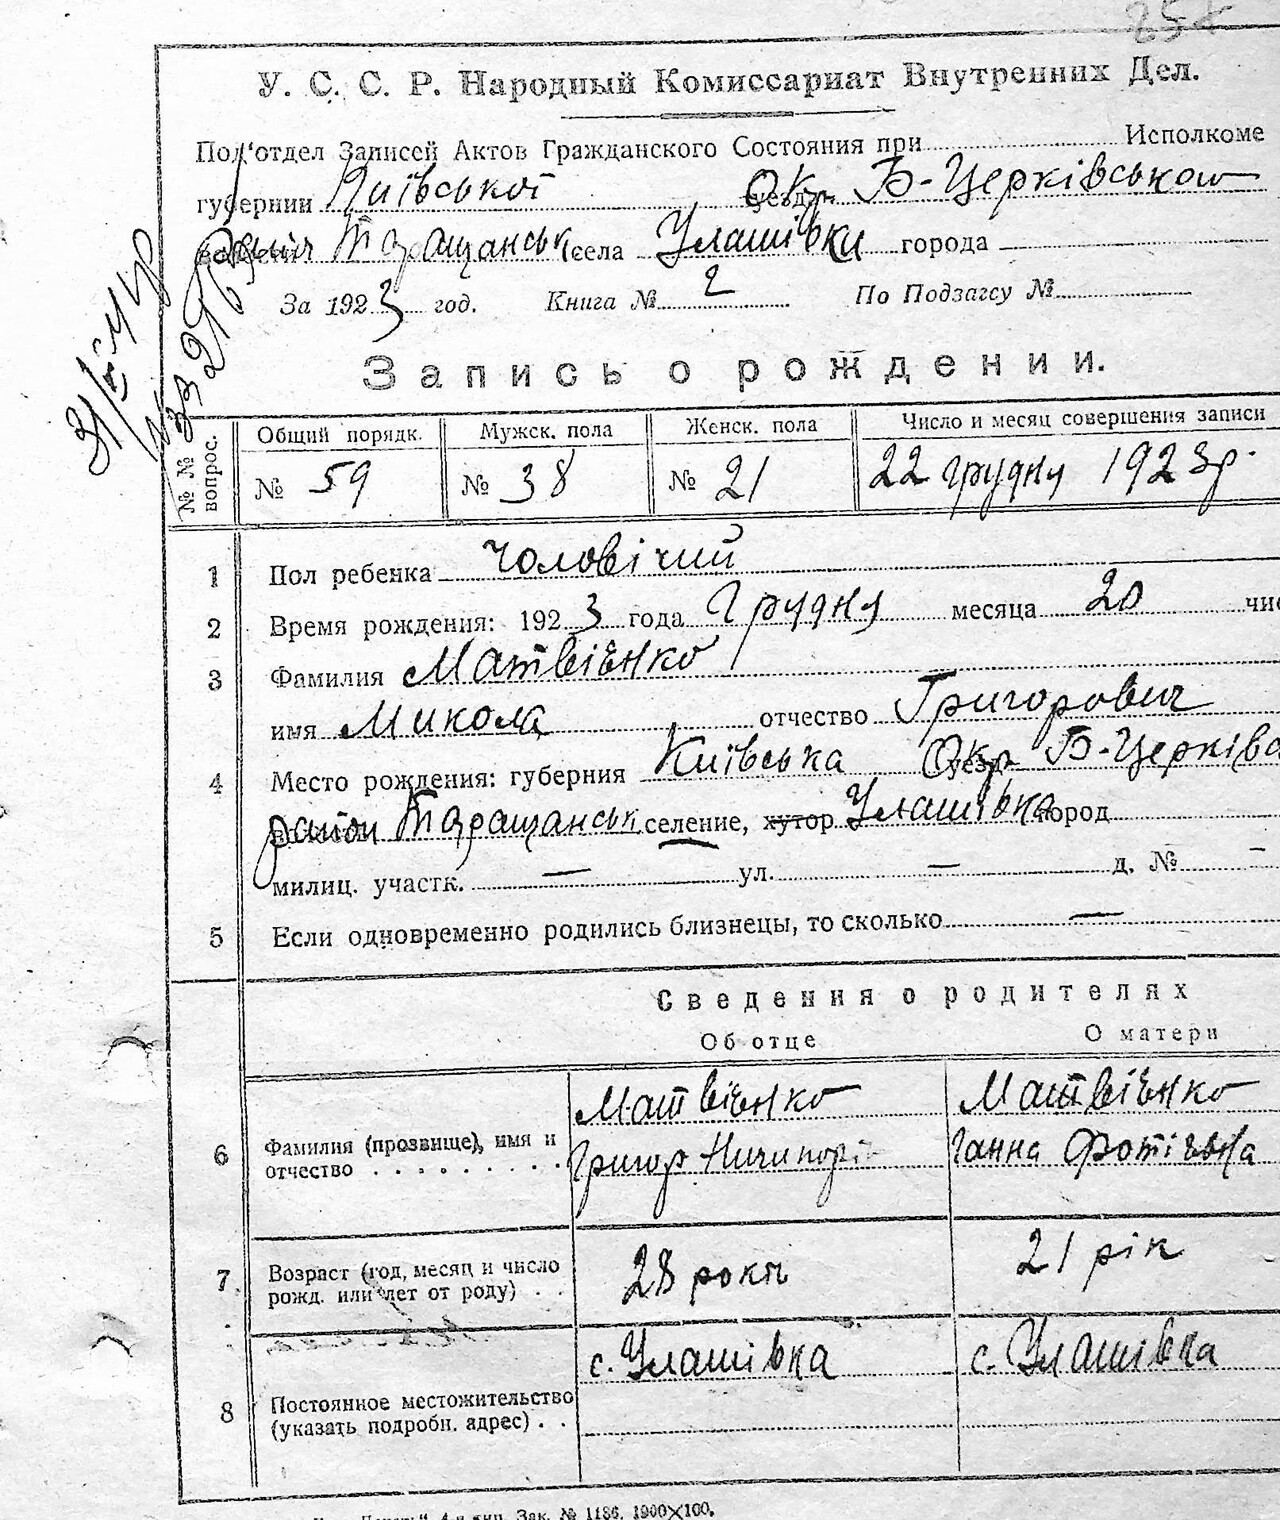 257
У. С. С. Р. Народный Комиссариат Внутренних Дел.
Под'отдел Записей Актов Гражданского Состояния при Исполкоме
губернии Київської Окр. Б-Церківською
Таращанськ села Улашівки города —
За 1923 год. Книга № 2 По Подзагсу №
Запись о рождении.
№ № вопрос. Общий порядк. Мужск. пола Женск. пола Число и месяц совершения записи
№ 59 № 38 № 21 22 грудня 1923 р.
1 Пол ребенка Чоловічий
2 Время рождения: 1923 года Грудня месяца 20 чис
3 Фамилия Матвієнко
имя Микола отчество Григорович
4 Место рождения: губерния Київська Окр. Б-Церківс
район Таращанськ селение, хутор Улашівка город
милиц. участк. — ул. — д. № -
5 Если одновременно родились близнецы, то сколько —
Сведения о родителях
Об отце О матери
Матвієнко Матвієнко
6 Фамилия (прозвище), имя и отчество Григор Ничипорі Ганна Фотіївна
7 Возраст (год, месяц и число рожд. или лет от роду) 28 роки 21 рік
с. Улашівка с. Улашівка
8 Постоянное местожительство (указать подробн. адрес)
Зак. № 1186. 1900×100.